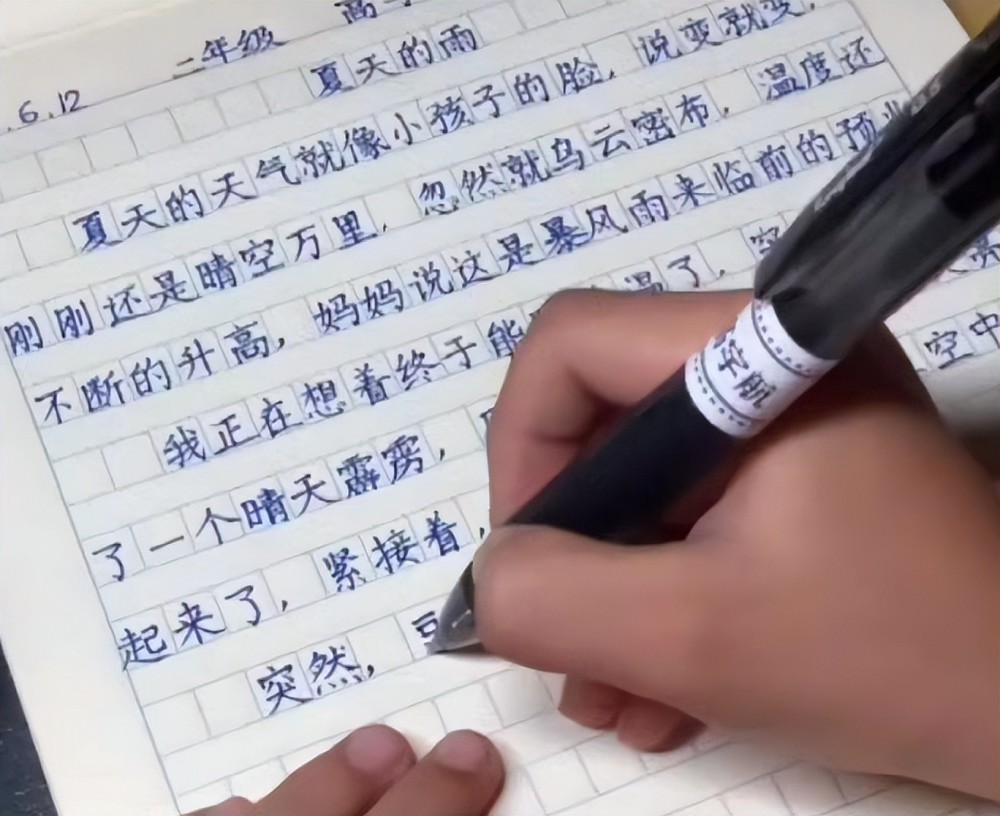 二年级
夏天的雨
.6.12
夏天的天气就像小孩子的脸，说变就变，
刚刚还是晴空万里，忽然就乌云密布，温度还
不断的升高，妈妈说这是暴风雨来临前的预
我正在想着终于能 温了，
了一个晴天霹雳， 空中
起来了，紧接着，
突然，
宇航